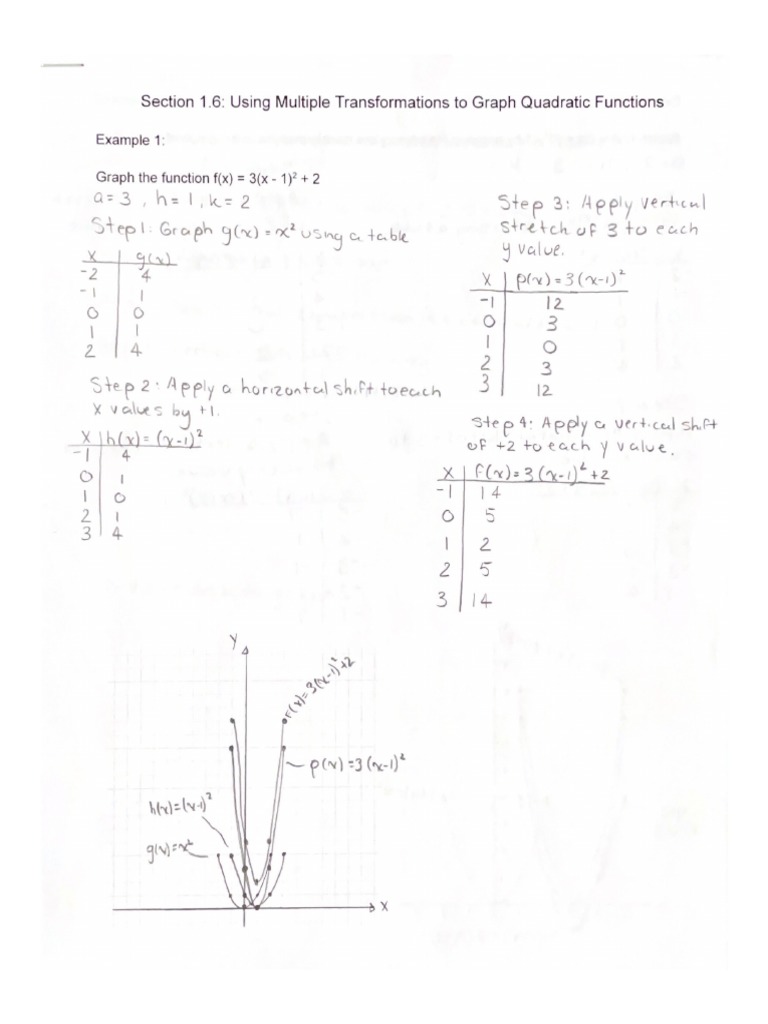 Section 1.6: Using Multiple Transformations to Graph Quadratic Functions
Example 1:
Graph the function f(x) = 3(x - 1)² + 2
a = 3 , h = 1 , k = 2
Step 1: Graph g(x) = x² using a table
x | g(x)
-2 | 4
-1 | 1
0 | 0
1 | 1
2 | 4
Step 2: Apply a horizontal shift to each
x values by +1.
x | h(x) = (x-1)²
-1 | 4
0 | 1
1 | 0
2 | 1
3 | 4
Step 3: Apply vertical
stretch of 3 to each
y value.
x | p(x) = 3(x-1)²
-1 | 12
0 | 3
1 | 0
2 | 3
3 | 12
Step 4: Apply a vertical shift
of +2 to each y value.
x | f(x) = 3(x-1)² + 2
-1 | 14
0 | 5
1 | 2
2 | 5
3 | 14
Y
f(x) = 3(x-1)² + 2
p(x) = 3(x-1)²
h(x) = (x-1)²
g(x) = x²
X